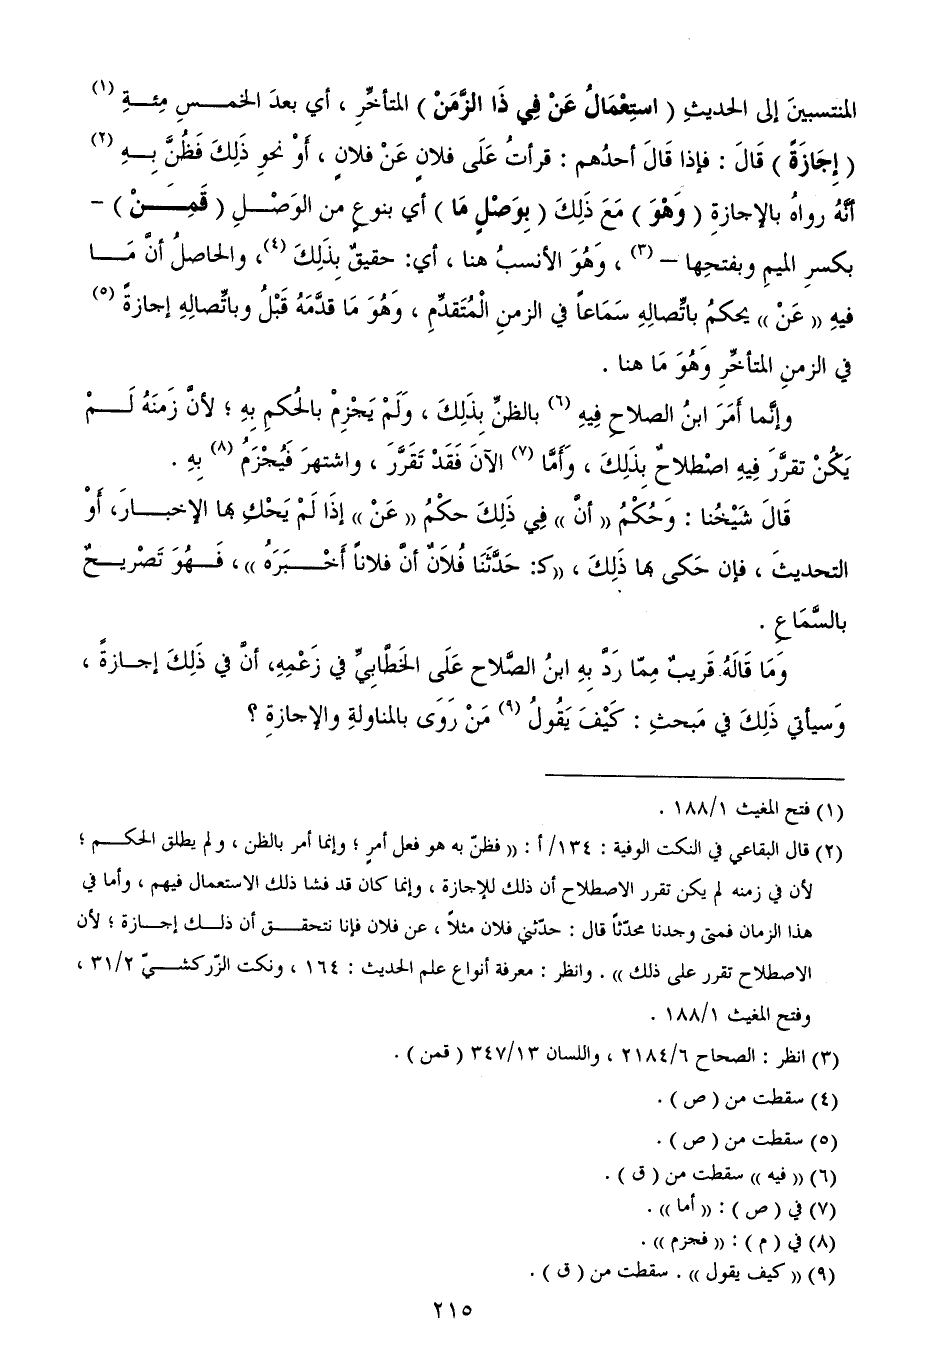 المنتسبينَ إلى الحديثِ ( استِعْمَالُ عَنْ فِي ذَا الزَّمَنْ ) المتأخِّرِ ، أي بعدَ الخمسِ مِئةِ (١)
( إِجَازَةً ) قَالَ : فإذا قَالَ أحدُهم : قرأتُ عَلَى فلانٍ عَنْ فلانٍ ، أَوْ نحوِ ذَلِكَ فَظُنَّ بِهِ (٢)
أنَّهُ رواهُ بالإجازةِ ( وَهْوَ ) مَعَ ذَلِكَ ( بِوَصْلٍ مَا ) أي بنوعٍ من الوَصْلِ ( قَمِنْ ) –
بكسرِ الميمِ وبفتحِها – (٣) ، وَهُوَ الأنسبُ هنا ، أي: حقيقٌ بِذَلِكَ (٤)، والحاصلُ أنَّ مَا
فيهِ (( عَنْ )) يحكمُ باتِّصالِهِ سَمَاعاً في الزمنِ الْمُتَقدِّمِ ، وَهُوَ مَا قدَّمَهُ قَبْلُ وباتِّصالِهِ إجازةً (٥)
في الزمنِ المتأخِّرِ وَهُوَ مَا هنا .
وإنَّما أَمَرَ ابنُ الصلاحِ فِيهِ (٦) بالظنِّ بِذَلِكَ ، وَلَمْ يَجْزِمْ بالحُكمِ بِهِ ؛ لأنَّ زمَنَهُ لَمْ
يَكُنْ تقرَّرَ فِيهِ اصْطلاحٌ بِذَلِكَ ، وَأَمَّا (٧) الآنَ فَقَدْ تَقَرَّرَ ، واشتهرَ فَيُجْزَمُ (٨) بِهِ .
قَالَ شَيْخُنا : وَحُكْمُ (( أنَّ )) فِي ذَلِكَ حكْمُ (( عَنْ )) إذَا لَمْ يَحْكِ بها الإخبارَ، أَوْ
التحديثَ ، فإن حَكى بها ذَلِكَ ، ((كـ: حَدَّثَنَا فُلاَنٌ أنَّ فلاناً أَخْبَرَهُ ))، فَهُوَ تَصْرِيحٌ
بالسَّمَاعِ .
وَمَا قَالَهُ قريبٌ مِمّا رَدَّ بِهِ ابنُ الصَّلاحِ عَلَى الخَطَّابيِّ في زَعْمِهِ، أنَّ في ذَلِكَ إجازةً ،
وَسيأتي ذَلِكَ في مَبحثِ : كَيْفَ يَقُولُ (٩) مَنْ رَوَى بالمناولةِ والإجازةِ ؟
(١) فتح المغيث ١/ ١٨٨ .
(٢) قال البقاعي في النكت الوفية : ١٣٤/ أ : (( فظنّ به هو فعل أمرٍ ؛ وإنما أمر بالظن ، ولم يطلق الحكم ؛
لأن في زمنه لم يكن تقرر الاصطلاح أن ذلك للإجازة ، وإنما كان قد فشا ذلك الاستعمال فيهم ، وأما في
هذا الزمان فمتى وجدنا محدّثاً قال : حدّثني فلان مثلاً ، عن فلان فإنا نتحقق أن ذلك إجازة ؛ لأن
الاصطلاح تقرر على ذلك )) . وانظر : معرفة أنواع علم الحديث : ١٦٤ ، ونكت الزّركشيّ ٣١/٢ ،
وفتح المغيث ١/ ١٨٨ .
(٣) انظر : الصحاح ٢١٨٤/٦ ، واللسان ٣٤٧/١٣ ( قمن ) .
(٤) سقطت من ( ص ) .
(٥) سقطت من ( ص ) .
(٦) (( فيه )) سقطت من ( ق ) .
(٧) في ( ص ) : (( أما )) .
(٨) في ( م ) : (( فجزم )) .
(٩) (( كيف يقول )) . سقطت من ( ق ) .
٢١٥